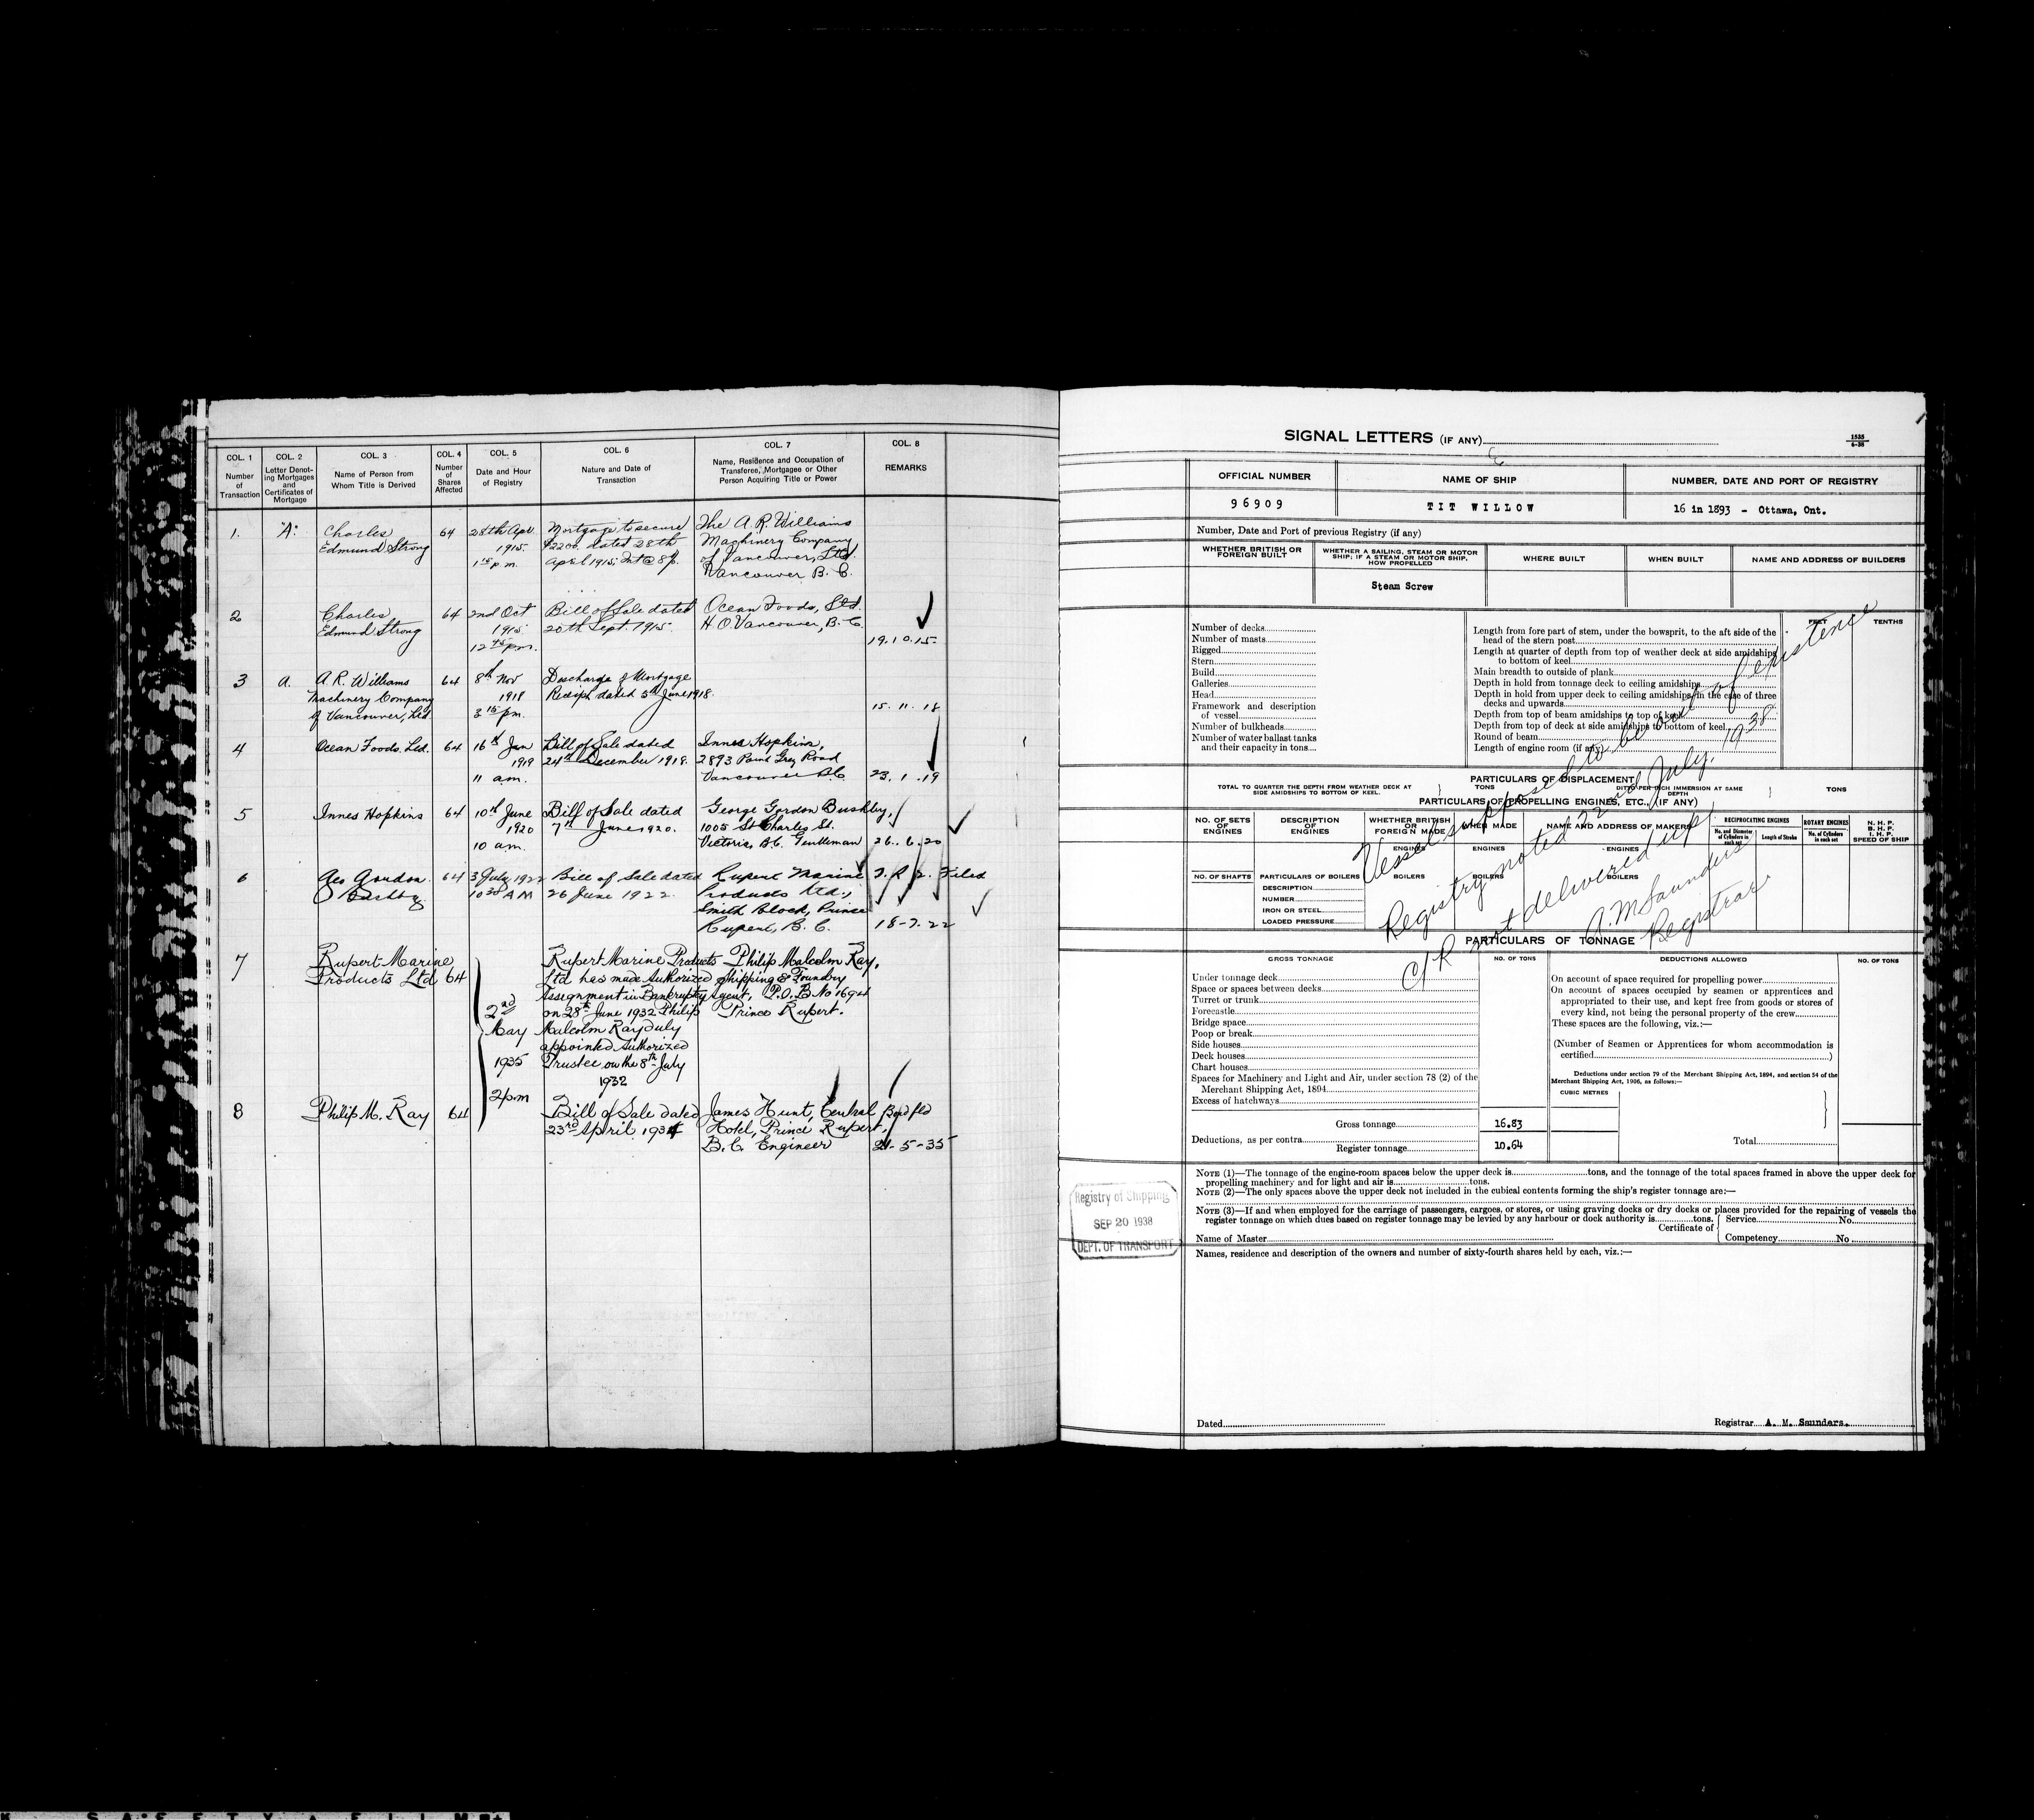 COL. 1
Number
of
Transaction
COL. 2
Letter Denot-
ing Mortgages
and
Certificates of
Mortgage
COL. 3
Name of Person from
Whom Title is Derived
COL. 4
Number
of
Shares
Affected
COL. 5
Date and Hour
of Registry
COL. 6
Nature and Date of
Transaction
COL. 7
Name, Residence and Occupation of
Transferee, Mortgagee or Other
Person Acquiring Title or Power
COL. 8
REMARKS
1.
"A."
Charles
Edmund Strong
64
28th Apr.
1915.
p.m.
Mortgage to secure
$2200. dated 28th
April 1915; Int @ 8%.
The A. R. Williams
Machinery Company
of Vancouver, Ltd.
Vancouver B. C.
2
Charles
Edmund Strong
64
2nd Oct
1915
12 45 p.m.
Bill of Sale dated
20th Sept. 1915.
Ocean Foods, Ltd.
H.O. Vancouver, B.C.
19.10.15.
3
a.
A.R. Williams
Machinery Company
of Vancouver, Ltd.
64
8th Nov
1918
3 15 pm.
Discharge of Mortgage
Receipt dated 5th June 1918.
15. 11. 18
4
Ocean Foods. Ltd.
64
16th Jan
1919
11 am.
Bill of Sale dated
24th December 1918.
Innes Hopkins,
2893 Point Grey Road
Vancouver B.C.
23. 1. 19
5
Innes Hopkins
64
10th June
1920
10 am.
Bill of Sale dated
7th June 1920.
George Gordon Bushby,
1005 St Charles St.
Victoria B.C. Gentleman
26. 6. 20
6
Geo Gordon
Bushby
64
3 July 1922
10 30 AM
Bill of Sale dated
26 June 1922.
Rupert Marine
Products Ltd.,
Smith Block, Prince
Rupert, B. C.
Filed
18-7.22
7
Rupert Marine
Products Ltd
64
2nd
May
1935
2 pm
Rupert Marine Products
Ltd has made Authorized
Assignment in Bankruptcy
on 28th June 1932 Philip
Malcolm Ray duly
appointed Authorized
Trustee on the 8th July
1932
Philip Malcolm Ray,
Shipping & Foundry
Agent, P.O. B No 1694
Prince Rupert.
8
Philip M. Ray
64
Bill of Sale dated
23rd April 1934
James Hunt, Central
Hotel, Prince Rupert,
B. C. Engineer
21-5-35
SIGNAL LETTERS (IF ANY)
1535
6-38
OFFICIAL NUMBER
96909
NAME OF SHIP
TIT WILLOW
NUMBER, DATE AND PORT OF REGISTRY
16 in 1893 - Ottawa, Ont.
Number, Date and Port of previous Registry (if any)
WHETHER BRITISH OR
FOREIGN BUILT
WHETHER A SAILING, STEAM OR MOTOR
SHIP; IF A STEAM OR MOTOR SHIP,
HOW PROPELLED
Steam Screw
WHERE BUILT
WHEN BUILT
NAME AND ADDRESS OF BUILDERS
Number of decks
Number of masts
Rigged
Stern
Build
Galleries
Head
Framework and description
of vessel
Number of bulkheads
Number of water ballast tanks
and their capacity in tons
FEET
TENTHS
Length from fore part of stem, under the bowsprit, to the aft side of the
head of the stern post
Length at quarter of depth from top of weather deck at side amidships
to bottom of keel
Main breadth to outside of plank
Depth in hold from tonnage deck to ceiling amidships
Depth in hold from upper deck to ceiling amidships, in the case of three
decks and upwards
Depth from top of beam amidships to top of keel
Depth from top of deck at side amidships to bottom of keel
Round of beam
Length of engine room (if any)
Vessel supposed to be out of existence
Registry noted 22nd July, 1938.
C/R not delivered up
A. M Saunders
Registrar
PARTICULARS OF DISPLACEMENT
TOTAL TO QUARTER THE DEPTH FROM WEATHER DECK AT
SIDE AMIDSHIPS TO BOTTOM OF KEEL.
TONS
DITTO PER INCH IMMERSION AT SAME
DEPTH
TONS
PARTICULARS OF PROPELLING ENGINES, ETC., (IF ANY)
NO. OF SETS
OF
ENGINES
DESCRIPTION
OF
ENGINES
WHETHER BRITISH
OR
FOREIGN MADE
WHEN MADE
NAME AND ADDRESS OF MAKERS
RECIPROCATING ENGINES
No. and Diameter
of Cylinders in
each set
Length of Stroke
ROTARY ENGINES
No. of Cylinders
in each set
N. H. P.
B. H. P.
I. H. P.
SPEED OF SHIP
ENGINES
ENGINES
ENGINES
NO. OF SHAFTS
PARTICULARS OF BOILERS
DESCRIPTION
NUMBER
IRON OR STEEL
LOADED PRESSURE
BOILERS
BOILERS
BOILERS
PARTICULARS OF TONNAGE
GROSS TONNAGE
NO. OF TONS
DEDUCTIONS ALLOWED
NO. OF TONS
Under tonnage deck
Space or spaces between decks
Turret or trunk
Forecastle
Bridge space
Poop or break
Side houses
Deck houses
Chart houses
Spaces for Machinery and Light and Air, under section 78 (2) of the
Merchant Shipping Act, 1894
Excess of hatchways
Gross tonnage
16.83
Deductions, as per contra
Register tonnage
10.64
On account of space required for propelling power
On account of spaces occupied by seamen or apprentices and
appropriated to their use, and kept free from goods or stores of
every kind, not being the personal property of the crew
These spaces are the following, viz.:—
(Number of Seamen or Apprentices for whom accommodation is
certified)
Deductions under section 79 of the Merchant Shipping Act, 1894, and section 54 of the
Merchant Shipping Act, 1906, as follows:—
CUBIC METRES
Total
NOTE (1)—The tonnage of the engine-room spaces below the upper deck is tons, and the tonnage of the total spaces framed in above the upper deck for
propelling machinery and for light and air is tons.
NOTE (2)—The only spaces above the upper deck not included in the cubical contents forming the ship's register tonnage are:—
NOTE (3)—If and when employed for the carriage of passengers, cargoes, or stores, or using graving docks or dry docks or places provided for the repairing of vessels the
register tonnage on which dues based on register tonnage may be levied by any harbour or dock authority is tons.
Certificate of
Service No.
Competency No
Name of Master
Registry of Shipping
SEP 20 1938
DEPT. OF TRANSPORT
Names, residence and description of the owners and number of sixty-fourth shares held by each, viz.:—
Dated
Registrar A. M. Saunders.